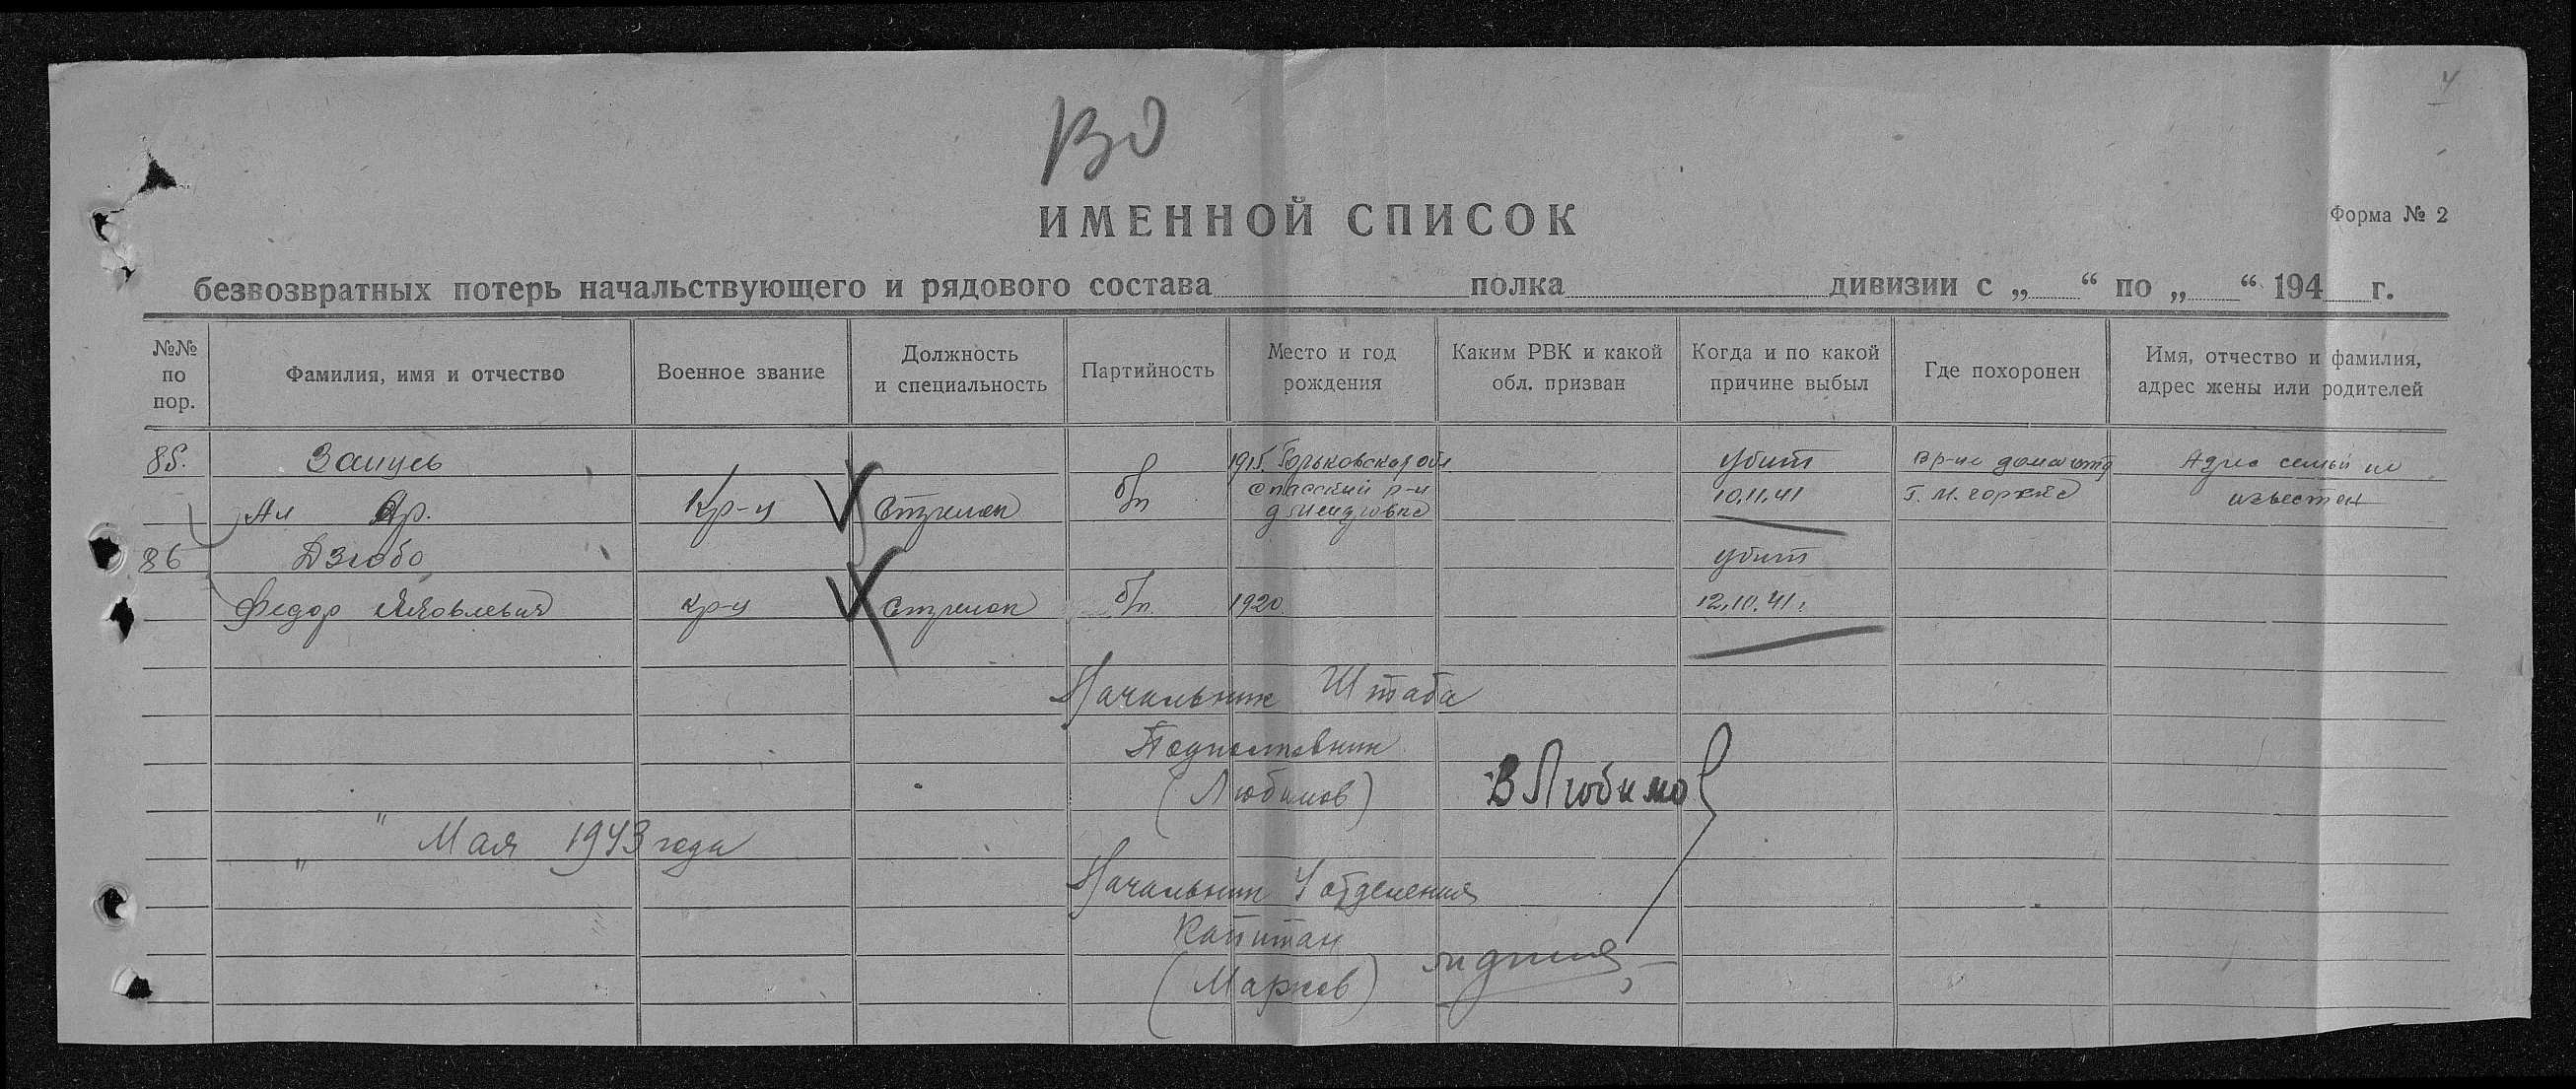 4
ВО
ИМЕННОЙ СПИСОК
Форма № 2
безвозвратных потерь начальствующего и рядового состава полка дивизии с „ “ по „ “ 194 г.
№№ по пор.
Фамилия, имя и отчество
Военное звание
Должность и специальность
Партийность
Место и год рождения
Каким РВК и какой обл. призван
Когда и по какой причине выбыл
Где похоронен
Имя, отчество и фамилия, адрес жены или родителей
85. Заицев 1915. Горьковская обл убит Адрес семьи не
Ал Др. Кр-ц Стрелок б/п Спасский р-н 10.11.41 Г. М. Горкас известен
86 Дзюбо убит
Федор Яковлевич кр-ц Стрелок б/п 1920 12.10.41г
Начальник Штаба
Подполковник
(Любимов) ВЛюбимов
" Мая 1943 года
Начальник 4 отделения
Капитан
(Марков)